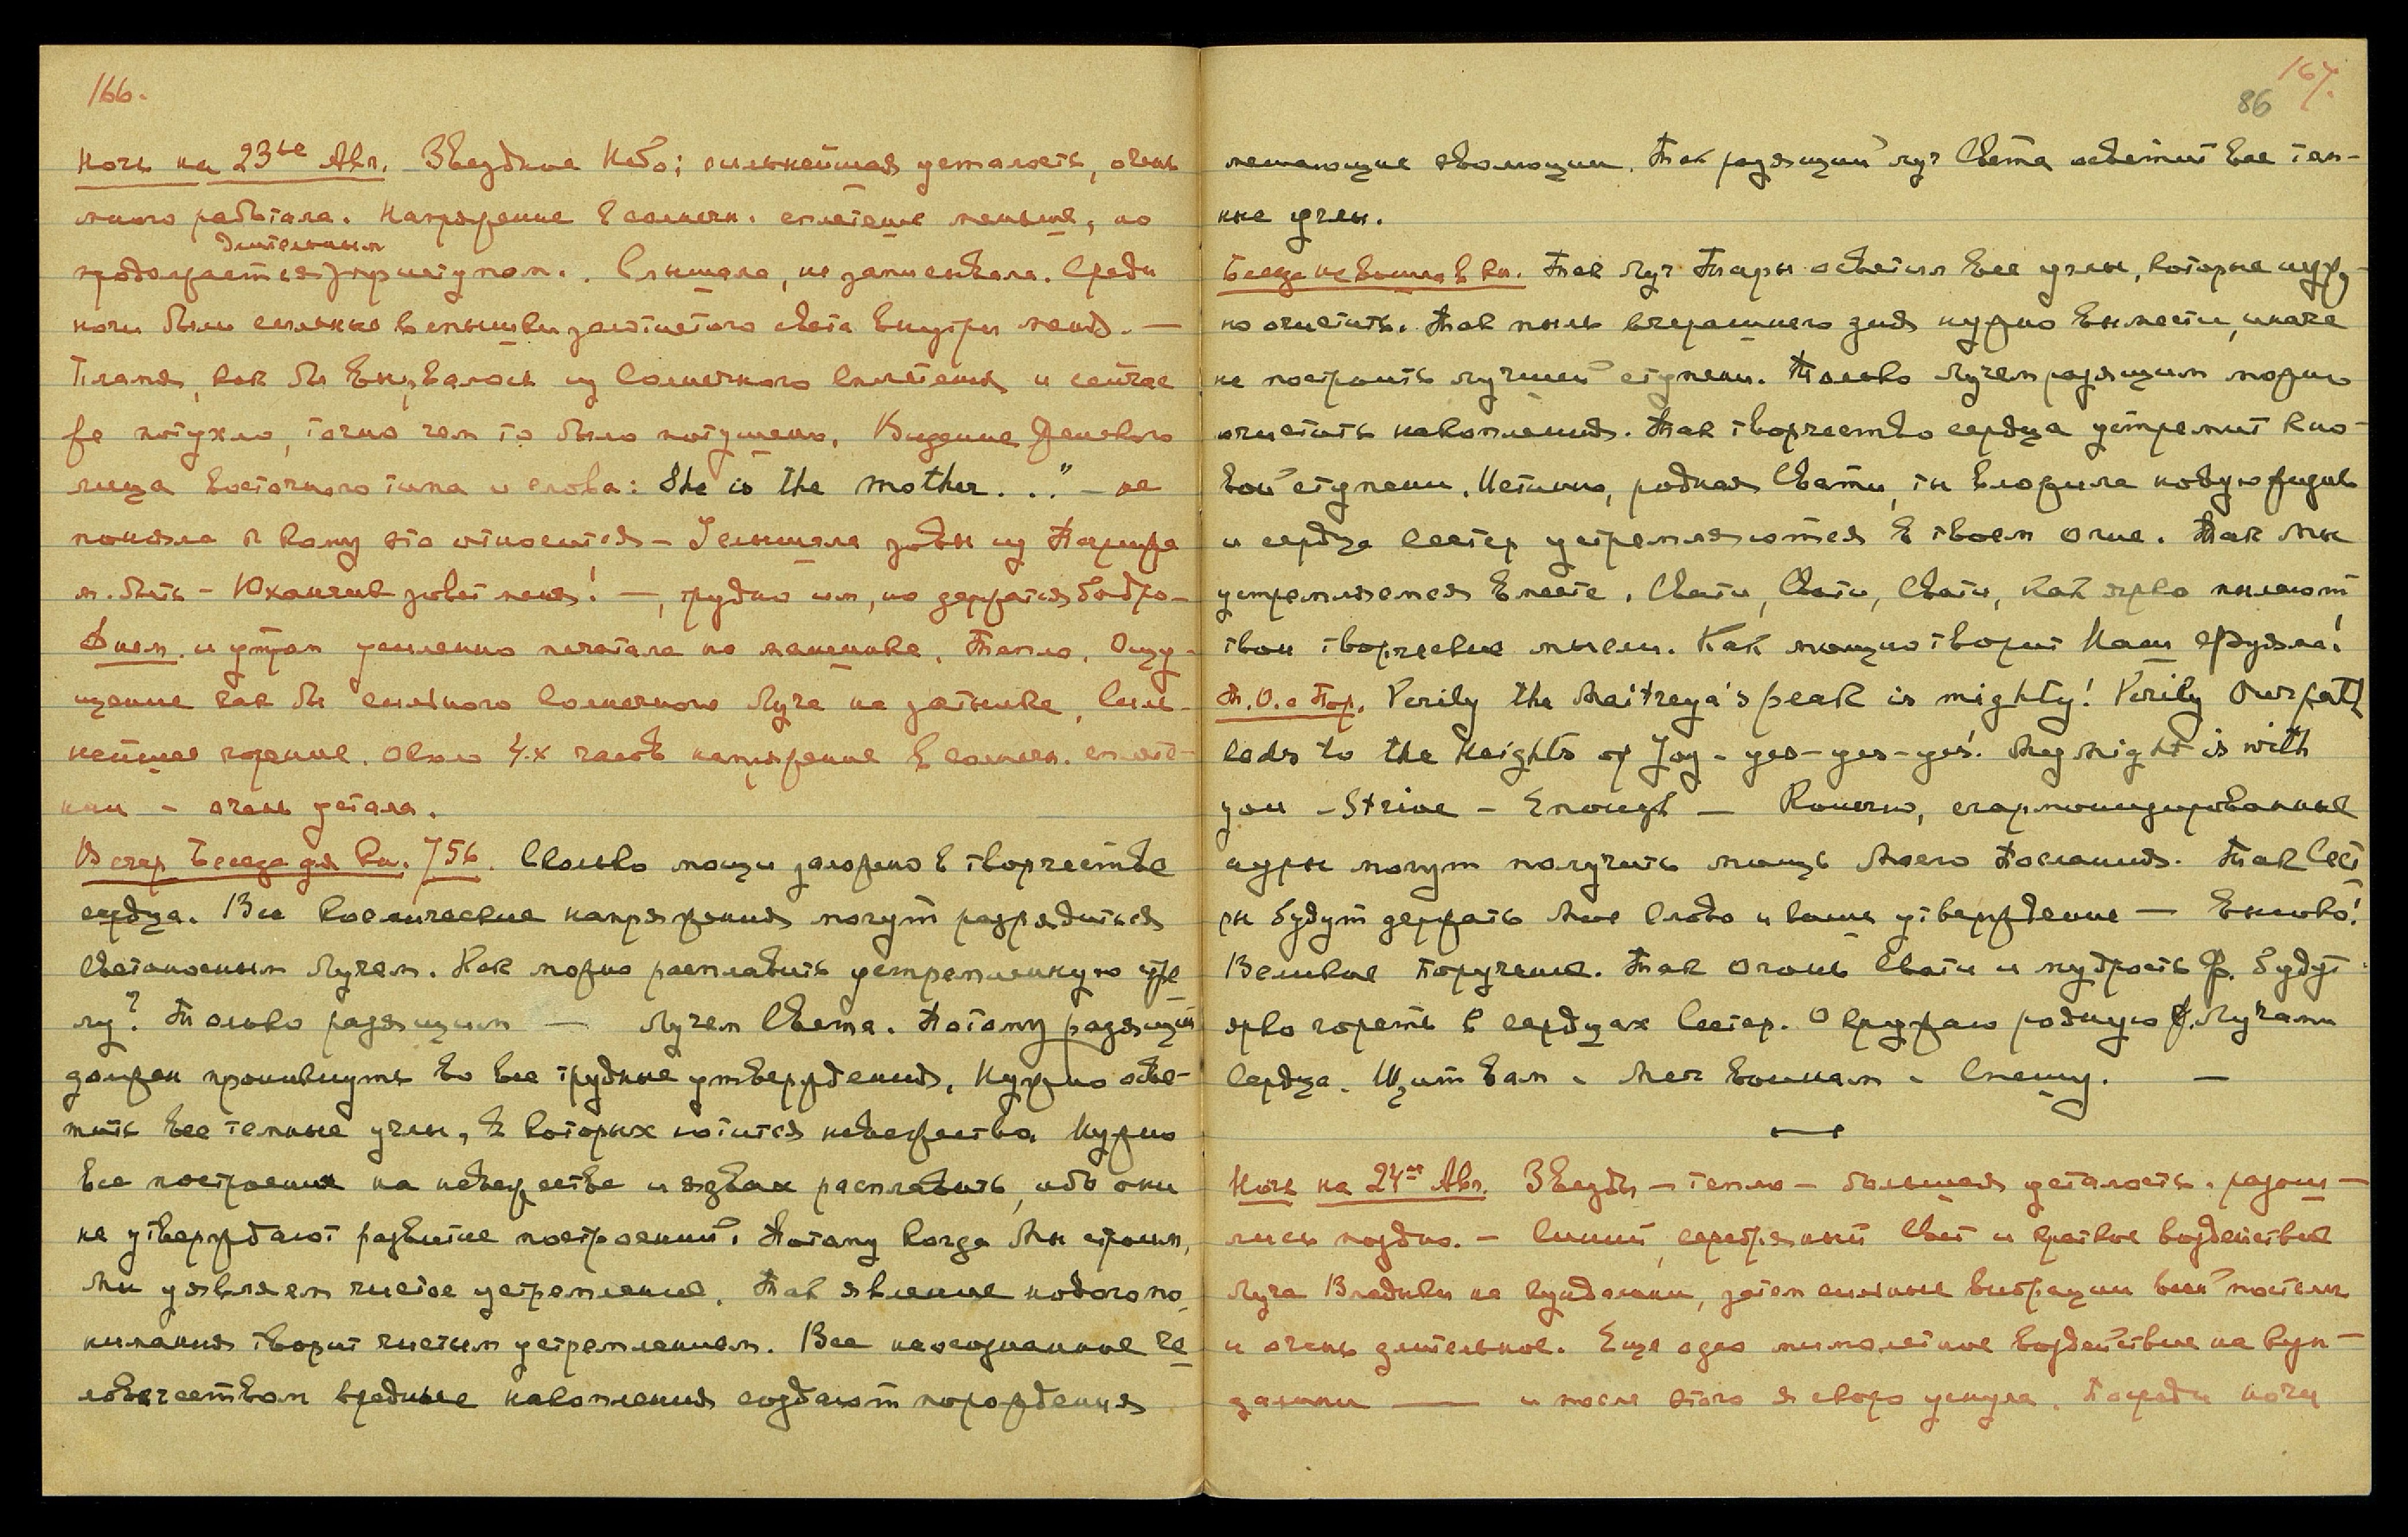 166.
Ночь на 23ье Авг. Звездное Небо; сильнейшая усталость, очень
много работала. Напряжение в солнечн. сплетение меньше, но
длительным
продолжается приступом. Слышала, не записывала. Среди
ночи были сильные вспышки золотистого света внутри меня. —
Пламя, как бы вырвалось из Солнечного Сплетения и сейчас
же потухло, точно чем то было потушено. Видение женского
лица восточного типа и слова: She is the mother. . ." – не
поняла к кому это относится – Услышала зовы из Парижа
м. быть – Юханчик зовет меня! —, трудно им, но держатся бодро –
Днем и утром усиленно печатала на машинке. Тепло. Ощу-
щение как бы сильного Солнечного Луча на затылке, Силь-
нейшее горение. Около 4х часов напряжение в солнечн. сплете-
нии – очень устала.
Вечер Беседа для Кн. 756. Сколько мощи заложено в творчестве
сердца. Все космические напряжения могут разрядиться
светоносным Лучем. Как можно расплавить устремленную стре
лу? Только разящим — Лучем Света. Потому разящий
должен проникнуть во все трудные утверждения. Нужно осве-
тить все темные углы, в которых ютится невежество. Нужно
все построения на невежестве и язвах расплавить, ибо они
не утверждают развитие построений. Потому когда Мы строим,
Мы уявляем чистое устремление. Так явление нового по
нимания творит чистым устремлением. Все неосознанные че
ловечеством вредные накопления создают порождения
167.
86
мешающие эволюции. Так разящий луч Света осветит все тем-
ные углы.
Беседа не вошла в Кн. Так Луч Тары осветил все углы, которые нуж-
но очистить. Так пыль вчерашнего дня нужно вымести, иначе
не построить лучшей ступени. Только Лучем разящим можно
очистить накопления. Так творчество сердца устремит к но-
вой ступени. Истинно, родная Свати, ты вложила новую жизнь
и сердца Сестер устремляются в твоем огне. Так Мы
устремляемся вместе. Свати, Свати, Свати, как ярко пылают
твои творческие мысли. Как мощно творит Наш Фуяма!
Т. О. с Пор. Verily the Maitreya's peak is mighty! Verily Our path
leads to the Heights of Joy – yes – yes – yes! My Might is with
you – Strive – Enough — Конечно, сгармонизированные
ауры могут получить мощь Моего Послания. Так Сест
ры будут держать Мое Слово и ваше утверждение — высоко!
Великое Поручение. Так огонь Свати и мудрость Ф. будут
ярко гореть в сердцах Сестер. Окружаю родную Лучами
Сердца. Щит вам. Меч воинам. Спешу. —
Ночь на 24ое Авг. Звезды – тепло – большая усталость. разош –
лись поздно. – Синий, серебряный Свет и краткое воздействие
Луча Владыки на кундалини, затем сильные вибрации всей постели
и очень длительное. Еще одно мимолетное воздействие на кун –
далини — и после этого я скоро уснула. Посреди ночи